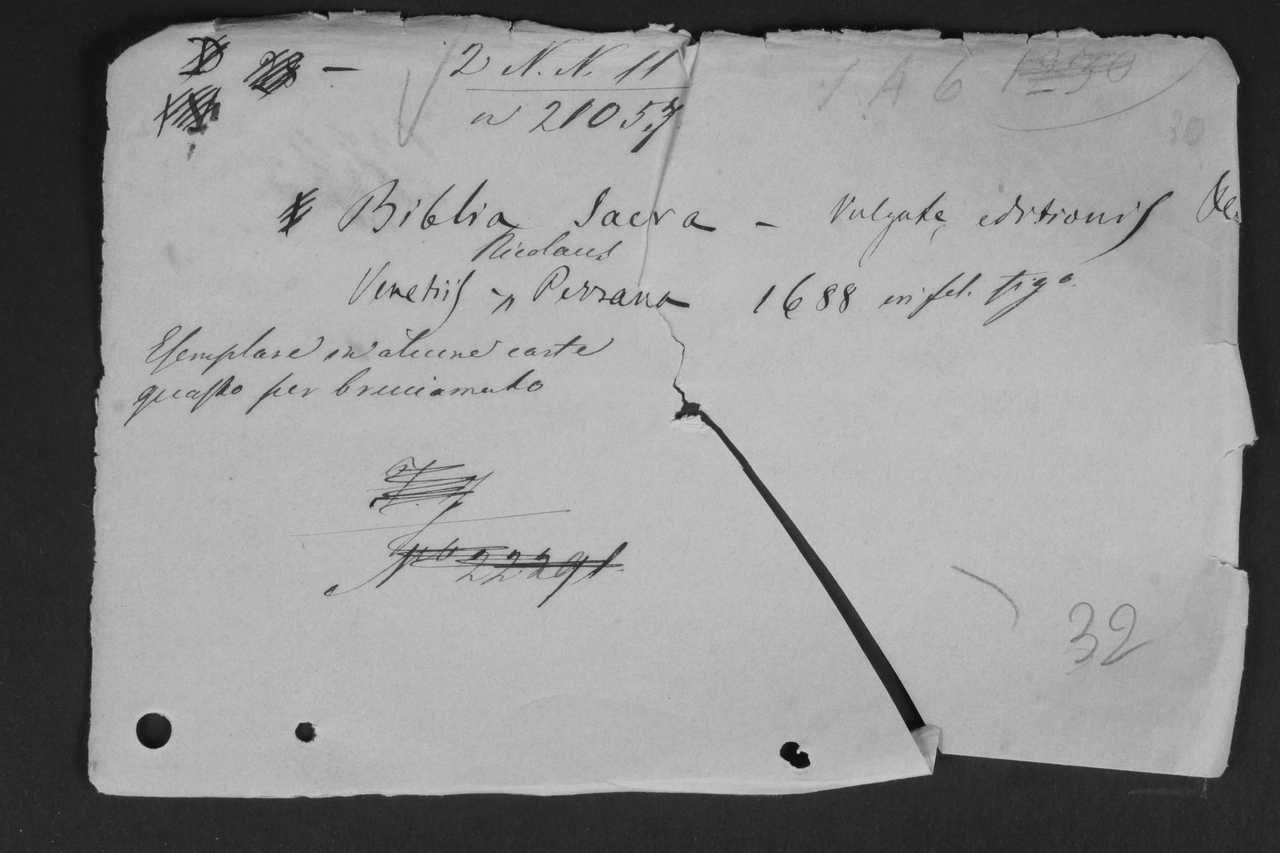 2 N. N. 11
1 A 6
n 21057
30
Biblia Sacra - Vulgatę editionis
Nicolaus
Venetiis - Pezzana 1688 in fol. fig.º
Esemplare in alcune carte
guasto per bruciamento
Nº 22291
32